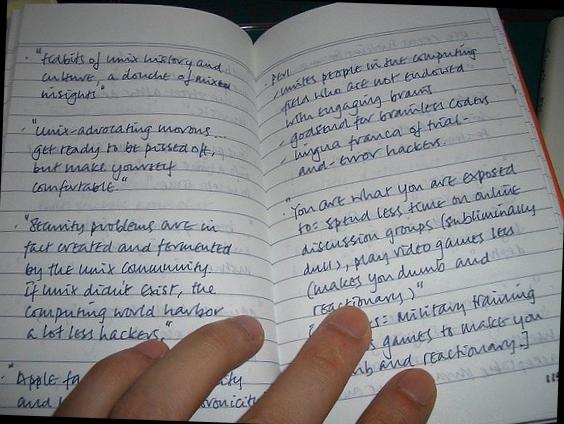 · "Tidbits of Unix history and
culture, a douche of mixed
insights"
· "Unix-advocating morons...
get ready to be pissed off,
but make yourself
comfortable."
· "Security problems are in
fact created and fermented
by the Unix community
If Unix didn't exist, the
computing world harbor
a lot less hackers."
· "Apple
and
· Perl
unites people in the computing
field who are not endowed
with engaging brains
godsend for brainless coders
lingua franca of trial-
and-error hackers.
· "You are what you are exposed
to: spend less time on online
discussion groups (subliminally
dull), play video games less
(makes you dumb and
reactionary)"
Military training
games to make you
and reactionary.]